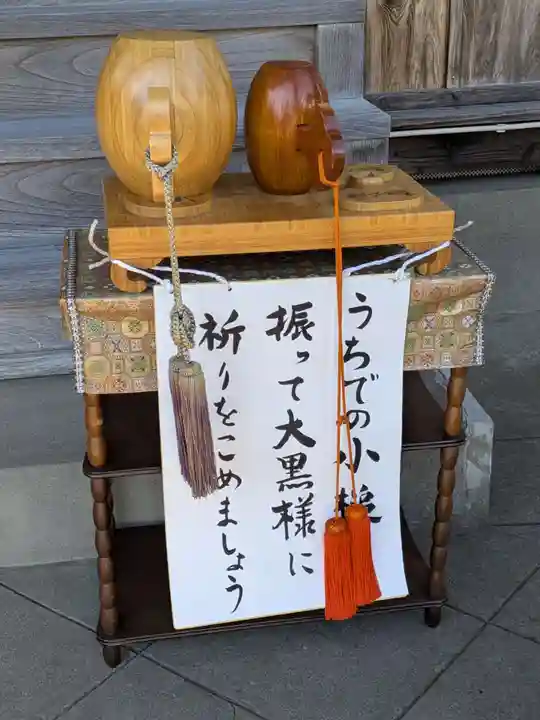 うちでの小槌
振って大黒様に
祈りをこめましょう